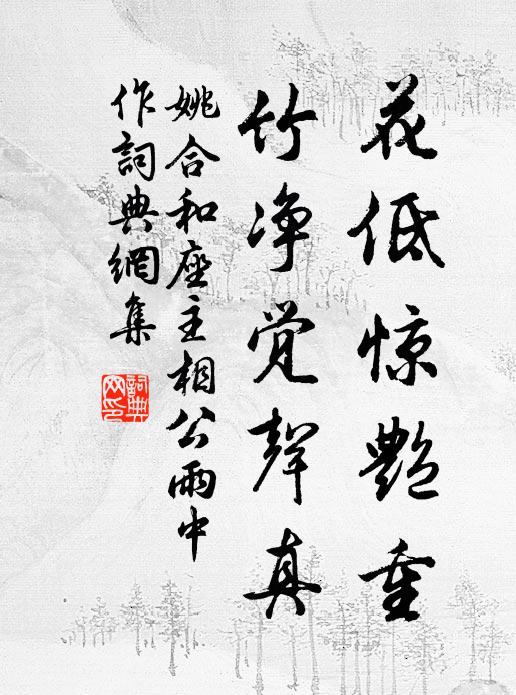 花低惊艳重
竹净觉聲真
姚合和座主相公雨中
作詞典網集
詞典网印